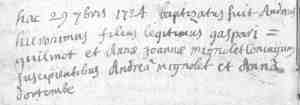 hac 29 7bris 1724 baptizatus fuit Andreas
hieronimus filius legitimus gaspari =
guilmot et Annæ Joannæ mignolet Coniugum
suscipientibus Andrea mignolet et Anna
dortembe